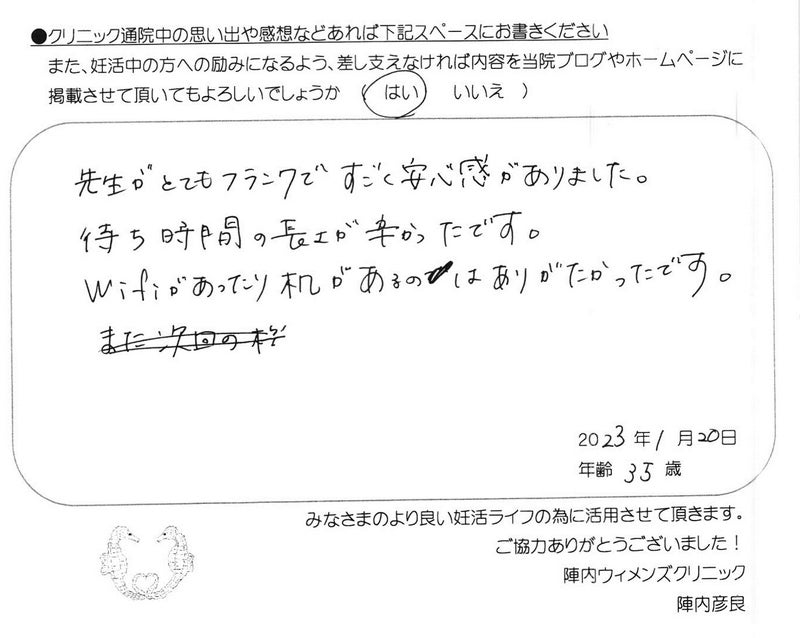 ●クリニック通院中の思い出や感想などあれば下記スペースにお書きください
また、妊活中の方への励みになるよう、差し支えなければ内容を当院ブログやホームページに
掲載させて頂いてもよろしいでしょうか （ はい いいえ ）
先生がとてもフランクで すごく安心感がありました。
待ち時間の長さが辛かったです。
Wifiがあったり机があるのはありがたかったです。
また次回の
2023年1月20日
年齢 35歳
みなさまのより良い妊活ライフの為に活用させて頂きます。
ご協力ありがとうございました！
陣内ウィメンズクリニック
陣内彦良